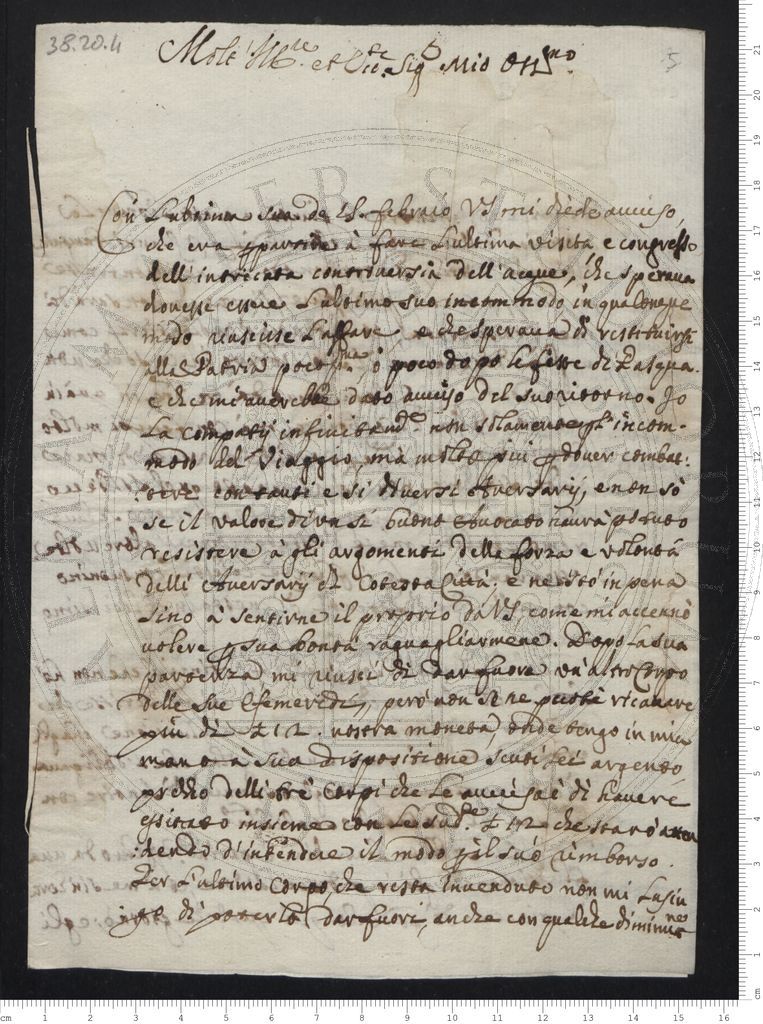 38.20.4
5
Molt' Ill.re et Ecc.te Sig.r Mio Oss.mo
Con l'ultima sua de 15. febraio VS mi diede auuiso,
che era per partire à fare l'ultima visita e congresso
dell'intricata controuersia dell'acque, che speraua
douesse essere l'ultimo suo incommodo in qualonque
modo riuscisse l'affare, e che speraua di restituirsi
alla Patria poco p.ma ò poco dopo le feste di Pasqua.
e che mi auerebbe dato auuiso del suo ritorno. Io
la compatij infinitam.te non solamente p l'incom-
modo del Viaggio, mà molto più p douer combat:
:tere con tanti e si diuersi Auersarij, e non sò
se il valore di un si buono Auocato haurà potuto
resistere à gli argomenti della forza e volontà
delli Auersarij di Cotesta Città: e ne stò in pena
sino à sentirne il proprio da VS, come mi accennò
volere p sua bontà raguagliarmene. Dopo la sua
partenza mi riuscì di dar fuore un'altro Corpo
delle Sue Efemeridi, però non si ne puotè ricauare
più di £ 12. nostra moneta, onde tengo in mia
mano à Sua dispositione scuti sei argento
prezzo delli trè Corpi che le auuisai di hauere
esitato insieme con le sud.te £ 12 che starò atten
:dendo d'intendere il modo p il suo rimborso.
Per l'ultimo Corpo, che resta inuenduto non mi lusin
:go di poterlo dar fuori, anche con qualche diminut
ne